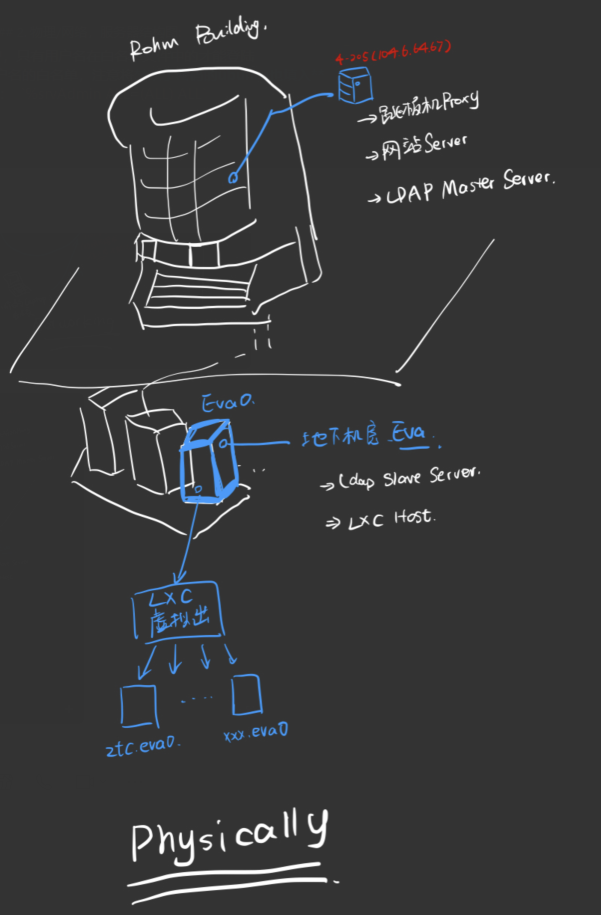 Rohm Building.
4-205(10.46.64.67)
→跳板机Proxy
→网站Server
→LDAP Master Server.
Eva0.
地下机房 Eva.
→Ldap Slave Server.
⇒ LXC Host.
LXC
虚拟出
....
ztc.eva0.
xxx.eva0
Physically